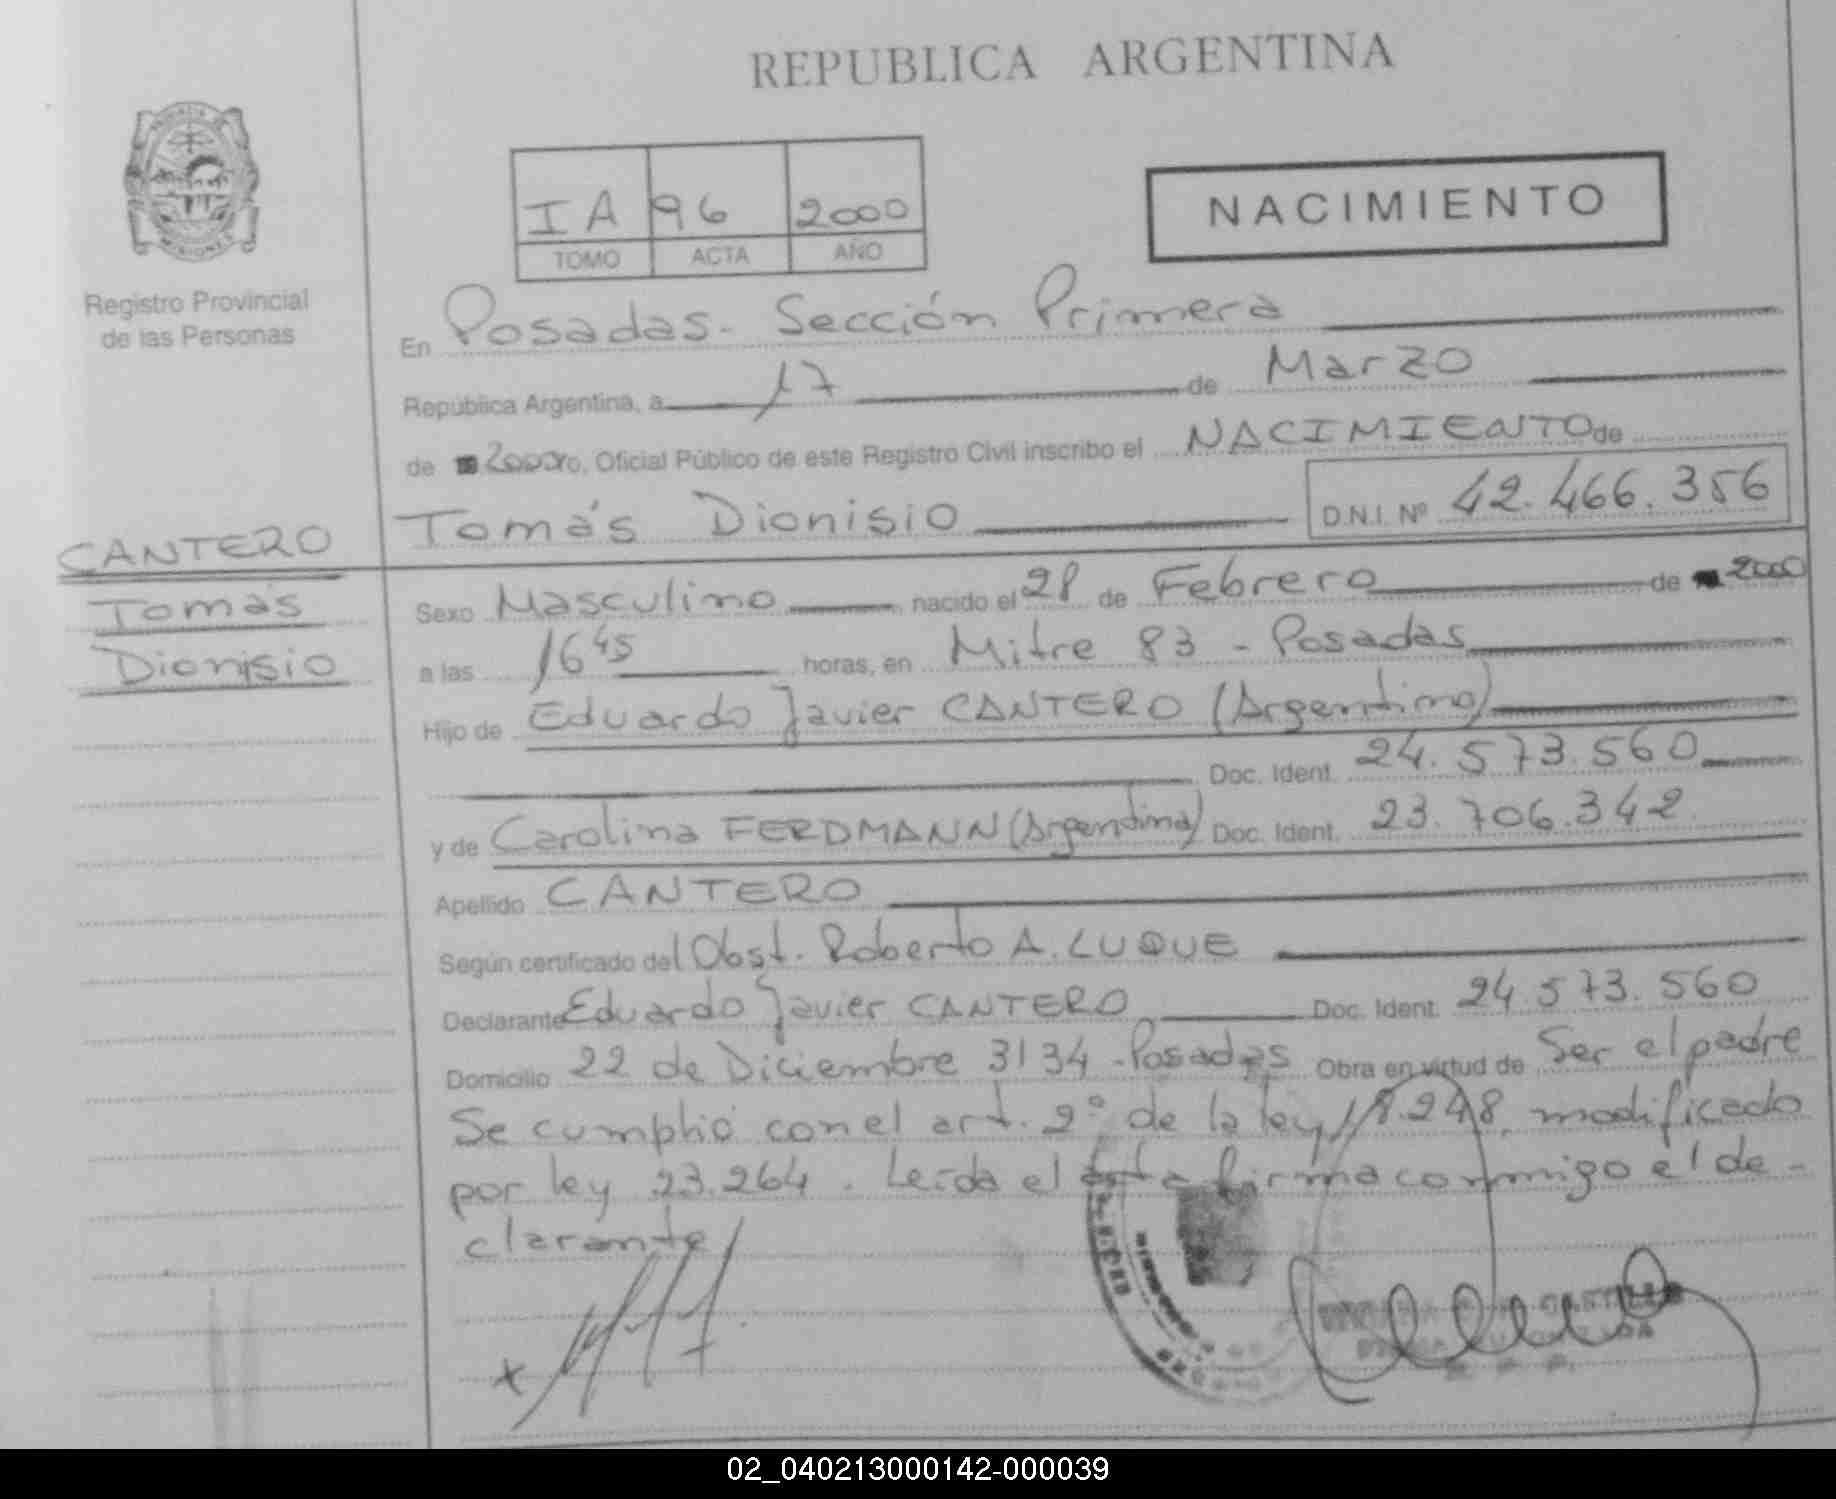 REPUBLICA ARGENTINA
PROVINCIA DE
MISIONES
Registro Provincial
de las Personas
IA 96 2000
TOMO ACTA AÑO
NACIMIENTO
En Posadas - Sección Primera
República Argentina, a 17 de Marzo
de 2000 yo, Oficial Público de este Registro Civil inscribo el NACIMIENTO de
Tomás Dionisio D.N.I. Nº 42.466.356
CANTERO
Tomás
Dionisio
Sexo Masculino nacido el 28 de Febrero de 2000
a las 16 45 horas, en Mitre 83 - Posadas
Hijo de Eduardo Javier CANTERO (Argentino)
Doc. Ident. 24.573.560
y de Carolina FERDMANN (Argentina) Doc. Ident. 23.706.342
Apellido CANTERO
Según certificado del Obst. Roberto A. LUQUE
Declarante Eduardo Javier CANTERO Doc. Ident. 24.573.560
Domicilio 22 de Diciembre 3134 - Posadas Obra en virtud de Ser el padre
Se cumplió con el art. 2º de la ley 18.248, modificado
por ley 23.264. Leída el acta firma conmigo el de-
clarante
02_040213000142-000039